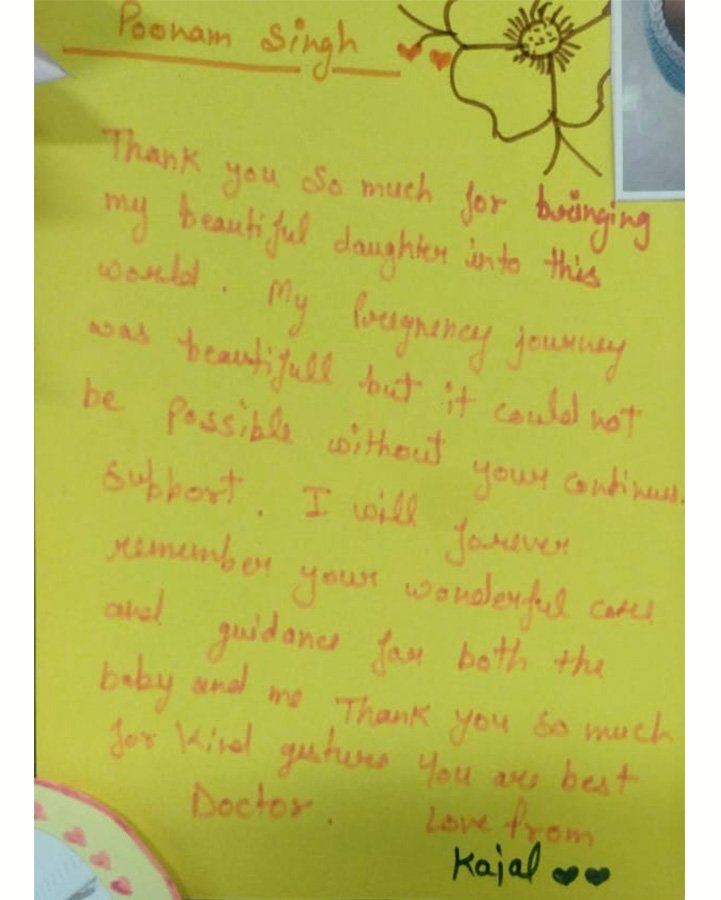 Poonam Singh
Thank you so much for bringing
my beautiful daughter into this
world. My Pregnency journey
was beautifull but it could not
be possible without your continues
support. I will forever
remember your wonderful care
and guidance for both the
baby and me Thank you so much
for kind gesture you are best
Doctor. Love from
Kajal